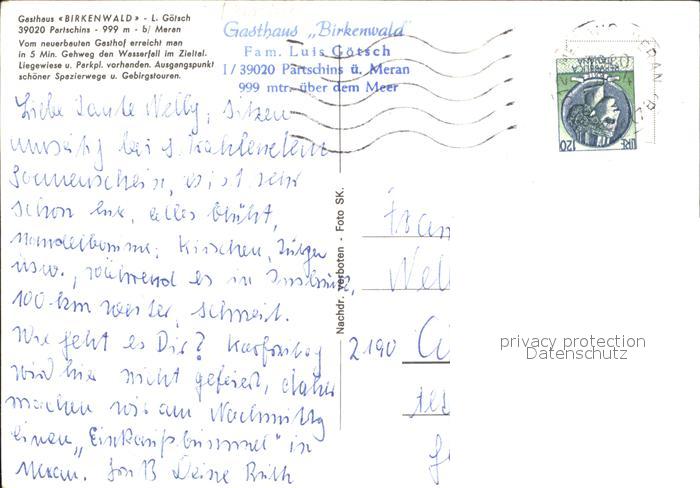 Gasthaus «BIRKENWALD» - L. Götsch
39020 Partschins - 999 m - b/ Meran
Vom neuerbauten Gasthof erreicht man
in 5 Min. Gehweg den Wasserfall im Zieltal.
Liegewiese u. Parkpl. vorhanden. Ausgangspunkt
schöner Spazierwege u. Gebirgstouren.
Gasthaus „Birkenwald"
Fam. Luis Götsch
I / 39020 Partschins ü. Meran
999 mtr. über dem Meer
LIRE 120
Liebe Tante Nelly, sitzen
bei
Sonnenschein, es ist sehr
schon hier, alles blüht,
Mandelbäume, Kirschen,
usw., während es in Innsbruck,
100 km weiter, schneit.
Wie geht es Dir? Karfreitag
wird hier nicht gefeiert, daher
machen wir am Nachmittag
einen „Einkaufsbummel" in
Meran. Deine Ruth
Nachdr. verboten - Foto SK.
Frau
Nell
2190 Cu
privacy protection
Datenschutz